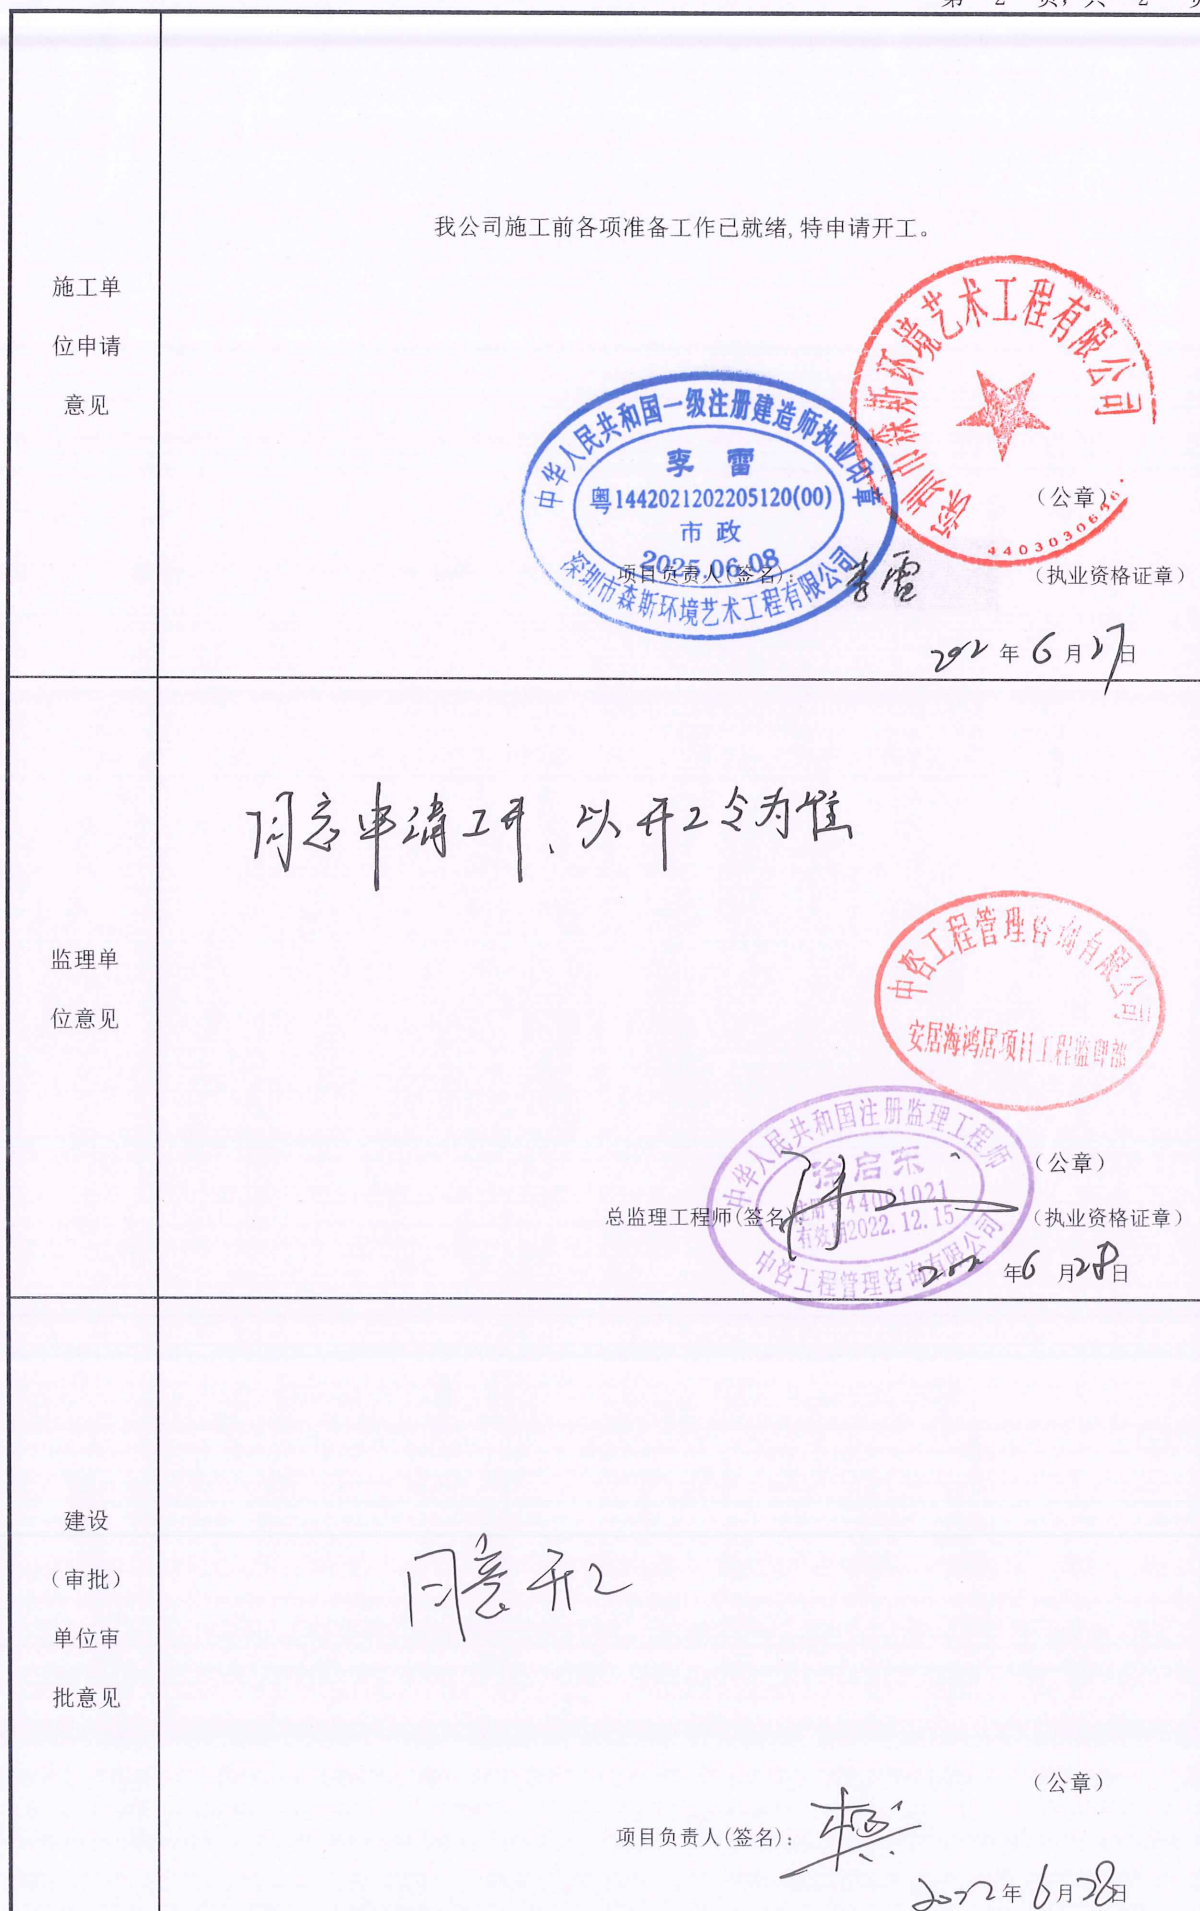 第 2 页，共 2 页
施工单
位申请
意见
我公司施工前各项准备工作已就绪,特申请开工。
深圳市森斯环境艺术工程有限公司
4403030656
中华人民共和国一级注册建造师执业印章
李雷
粤1442021202205120(00)
市政
2025.06.08
深圳市森斯环境艺术工程有限公司
（公章）
项目负责人(签名): 李雷 (执业资格证章)
2022 年 6 月 27 日
监理单
位意见
同意申请工开、以开工令为准
中咨工程管理咨询有限公司
安居海鸿居项目工程监理部
中华人民共和国注册监理工程师
徐启东
注册号44001021
有效期2022.12.15
中咨工程管理咨询有限公司
（公章）
总监理工程师(签名) (执业资格证章)
2022 年 6 月 28 日
建设
（审批）
单位审
批意见
同意开工
（公章）
项目负责人(签名):
2022 年 6 月 28 日